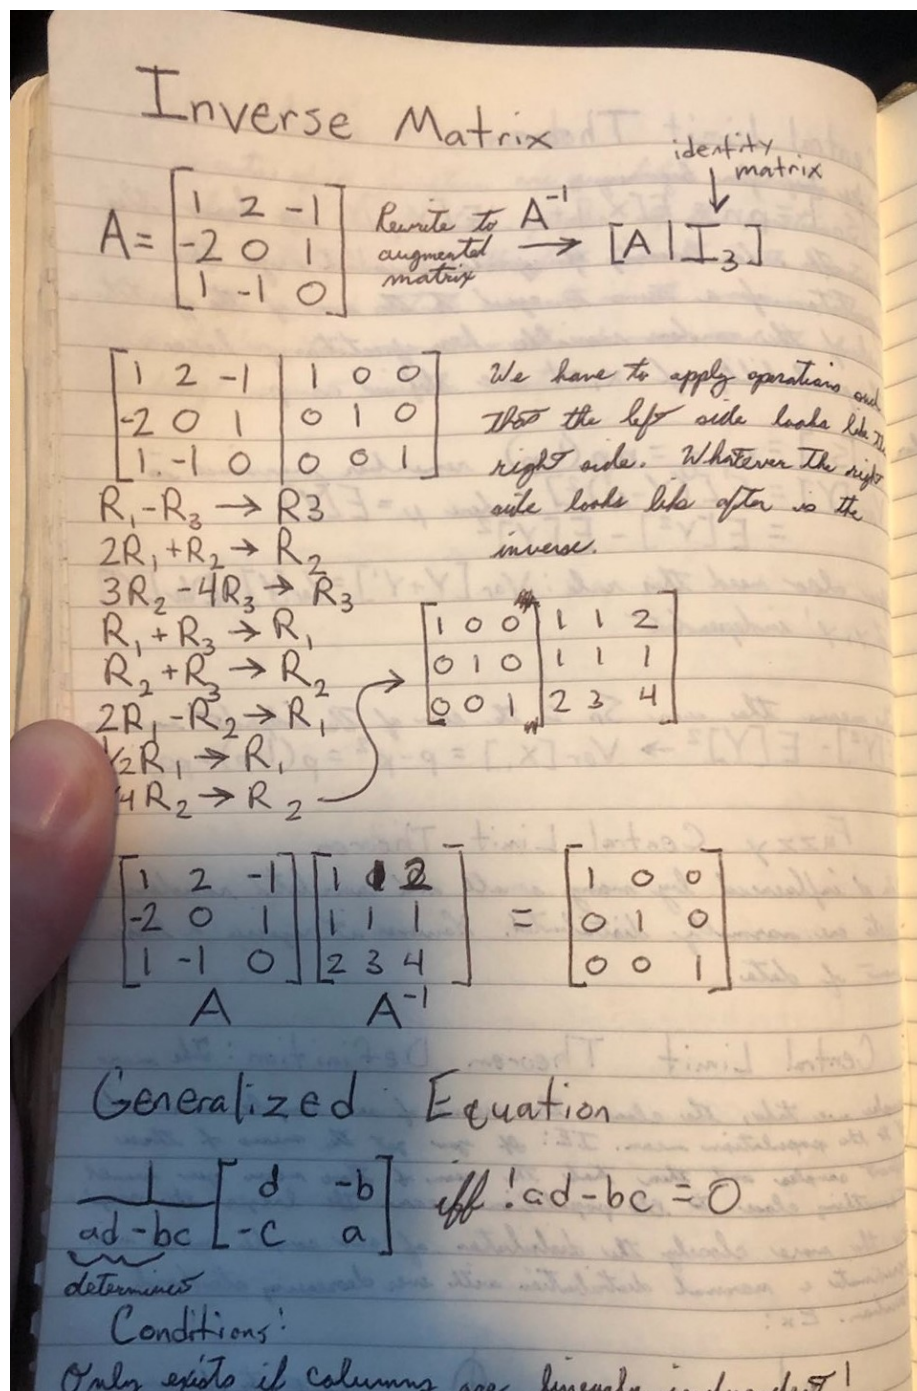 Inverse Matrix
identity
matrix
↓
A = [1 2 -1; -2 0 1; 1 -1 0] Rewrite to augmented matrix A⁻¹ → [A | I₃]
1 2 -1 | 1 0 0
-2 0 1 | 0 1 0
1 -1 0 | 0 0 1
We have to apply operations such
that the left side looks like the
right side. Whatever the right
side looks like after is the
inverse.
R₁ - R₃ → R3
2R₁ + R₂ → R₂
3R₂ - 4R₃ → R₃
R₁ + R₃ → R₁
R₂ + R₃ → R₂
2R₁ - R₂ → R₁
½R₁ → R₁
4R₂ → R₂
1 0 0 | 1 1 2
0 1 0 | 1 1 1
0 0 1 | 2 3 4
[1 2 -1; -2 0 1; 1 -1 0] [1 1 2; 1 1 1; 2 3 4] = [1 0 0; 0 1 0; 0 0 1]
A A⁻¹
Generalized Equation
1/(ad - bc) [d -b; -c a] iff !ad - bc = 0
Conditions:
Only exists if columns are linearly